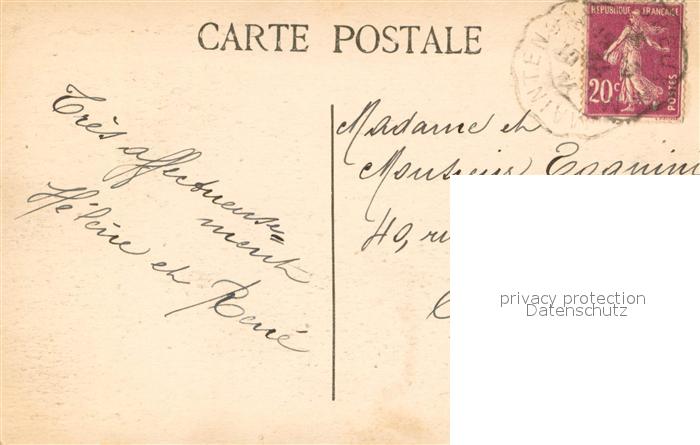 CARTE POSTALE
REPUBLIQUE FRANÇAISE
20c
POSTES
MAINTEN
Très affectueuse=
ment
Hélène et René
Madame et
Monsieur
40, ru
privacy protection
Datenschutz